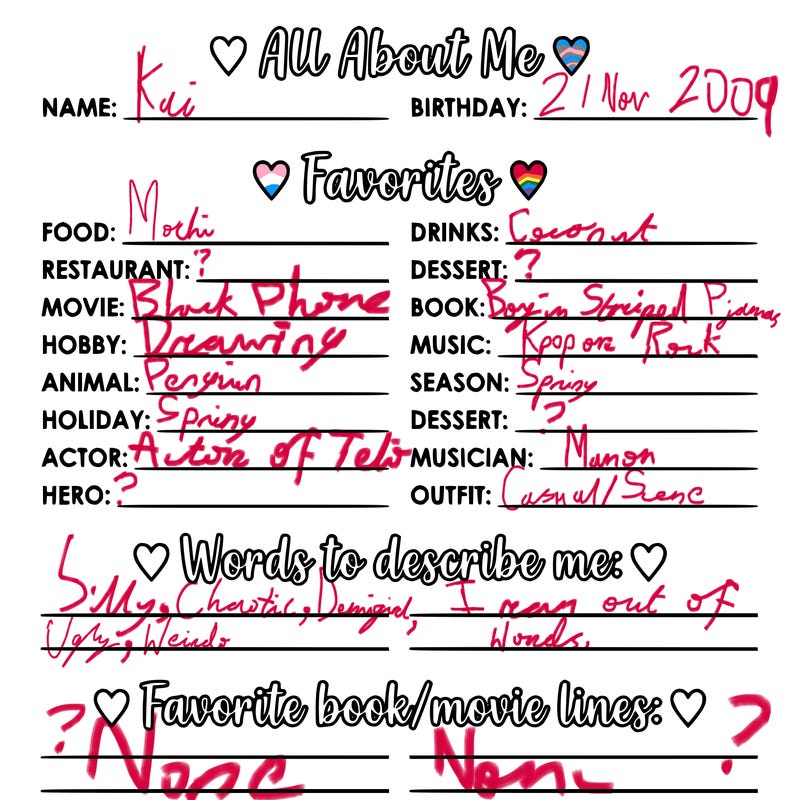 All About Me
NAME: Kai BIRTHDAY: 21 Nov 2009
Favorites
FOOD: Mochi DRINKS: Coconut
RESTAURANT: ? DESSERT: ?
MOVIE: Black Phone BOOK: Boy in Striped Pjamas
HOBBY: Drawing MUSIC: Kpop or Rock
ANIMAL: Penguin SEASON: Spring
HOLIDAY: Spring DESSERT: ?
ACTOR: Actor of MUSICIAN: Manon
HERO: ? OUTFIT: Casual/Scene
Words to describe me:
Silly, Chaotic, Demigirl, I ran out of
Ugly, Weirdo words.
Favorite book/movie lines:
? None None ?